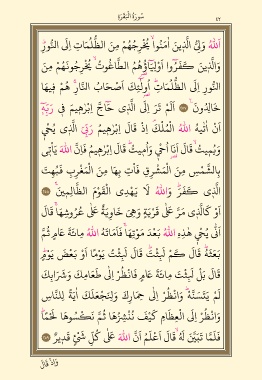 ٤٢
سُورَةُ الْبَقَرَةِ
اَللّٰهُ وَلِيُّ الَّذ۪ينَ اٰمَنُواۙ يُخْرِجُهُمْ مِنَ الظُّلُمَاتِ اِلَى النُّورِۜ
وَالَّذ۪ينَ كَفَرُٓوا اَوْلِيَٓاؤُ۬هُمُ الطَّاغُوتُۙ يُخْرِجُونَهُمْ مِنَ
النُّورِ اِلَى الظُّلُمَاتِۜ اُو۬لٰٓئِكَ اَصْحَابُ النَّارِۚ هُمْ ف۪يهَا
خَالِدُونَ ﴿٢٥٧﴾ اَلَمْ تَرَ اِلَى الَّذ۪ي حَٓاجَّ اِبْرٰه۪يمَ ف۪ي رَبِّه۪ٓ
اَنْ اٰتٰيهُ اللّٰهُ الْمُلْكَۢ اِذْ قَالَ اِبْرٰه۪يمُ رَبِّيَ الَّذ۪ي يُحْي۪
وَيُم۪يتُۙ قَالَ اَنَا۬ اُحْي۪ وَاُم۪يتُۜ قَالَ اِبْرٰه۪يمُ فَاِنَّ اللّٰهَ يَأْت۪ي
بِالشَّمْسِ مِنَ الْمَشْرِقِ فَأْتِ بِهَا مِنَ الْمَغْرِبِ فَبُهِتَ
الَّذ۪ي كَفَرَۜ وَاللّٰهُ لَا يَهْدِي الْقَوْمَ الظَّالِم۪ينَۚ ﴿٢٥٨﴾
اَوْ كَالَّذ۪ي مَرَّ عَلٰى قَرْيَةٍ وَهِيَ خَاوِيَةٌ عَلٰى عُرُوشِهَاۚ قَالَ
اَنّٰى يُحْي۪ هٰذِهِ اللّٰهُ بَعْدَ مَوْتِهَاۚ فَاَمَاتَهُ اللّٰهُ مِائَةَ عَامٍ ثُمَّ
بَعَثَهُۜ قَالَ كَمْ لَبِثْتَۜ قَالَ لَبِثْتُ يَوْمًا اَوْ بَعْضَ يَوْمٍۜ
قَالَ بَلْ لَبِثْتَ مِائَةَ عَامٍ فَانْظُرْ اِلٰى طَعَامِكَ وَشَرَابِكَ
لَمْ يَتَسَنَّهْۚ وَانْظُرْ اِلٰى حِمَارِكَ وَلِنَجْعَلَكَ اٰيَةً لِلنَّاسِ
وَانْظُرْ اِلَى الْعِظَامِ كَيْفَ نُنْشِزُهَا ثُمَّ نَكْسُوهَا لَحْمًاۜ
فَلَمَّا تَبَيَّنَ لَهُۙ قَالَ اَعْلَمُ اَنَّ اللّٰهَ عَلٰى كُلِّ شَيْءٍ قَد۪يرٌ ﴿٢٥٩﴾
وَاِذْ قَالَ